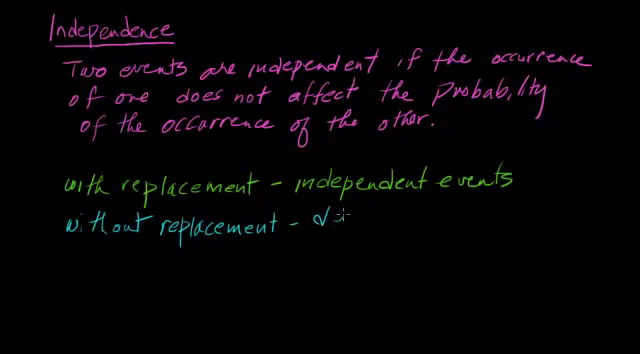 Independence
Two events are independent if the occurrence
of one does not affect the Probability
of the occurrence of the other.
with replacement - independent events
without replacement - d